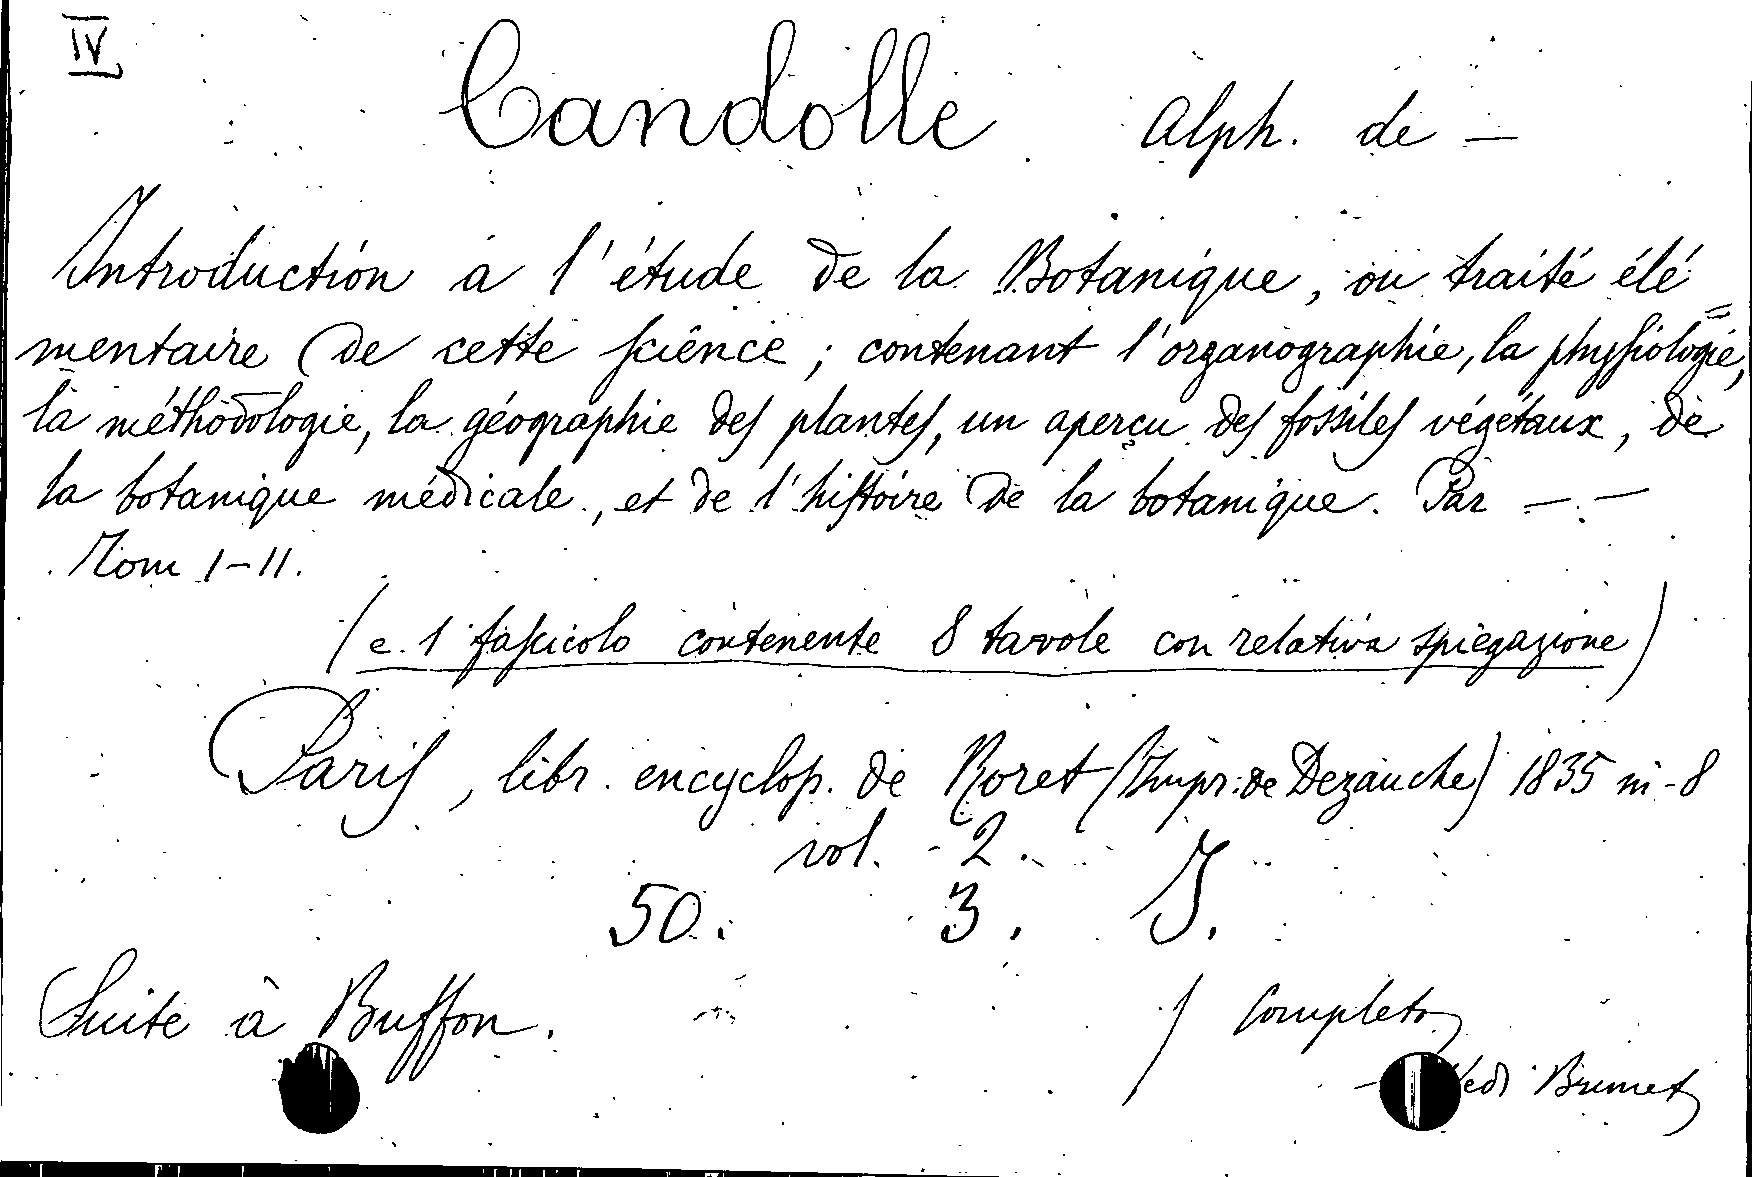 IV
Candolle Alph. de —
Introduction a l'étude de la Botanique, ou traité élé=
mentaire de cette science; contenant l'organographie, la physiologie,
la méthodologie, la géographie des plantes, un aperçu des fossiles végétaux, de
la botanique médicale, et de l'histoire de la botanique. Par — . —
Tom I-II.
(e 1 fascicolo contenente 8 tavole con relativa spiegazione)
Paris, libr. encyclop. de Roret (Impr. de Dezauche) 1835 in-8
vol. 2.
50. 3. J.
Suite à Buffon. / Completo
Vedi Brunet